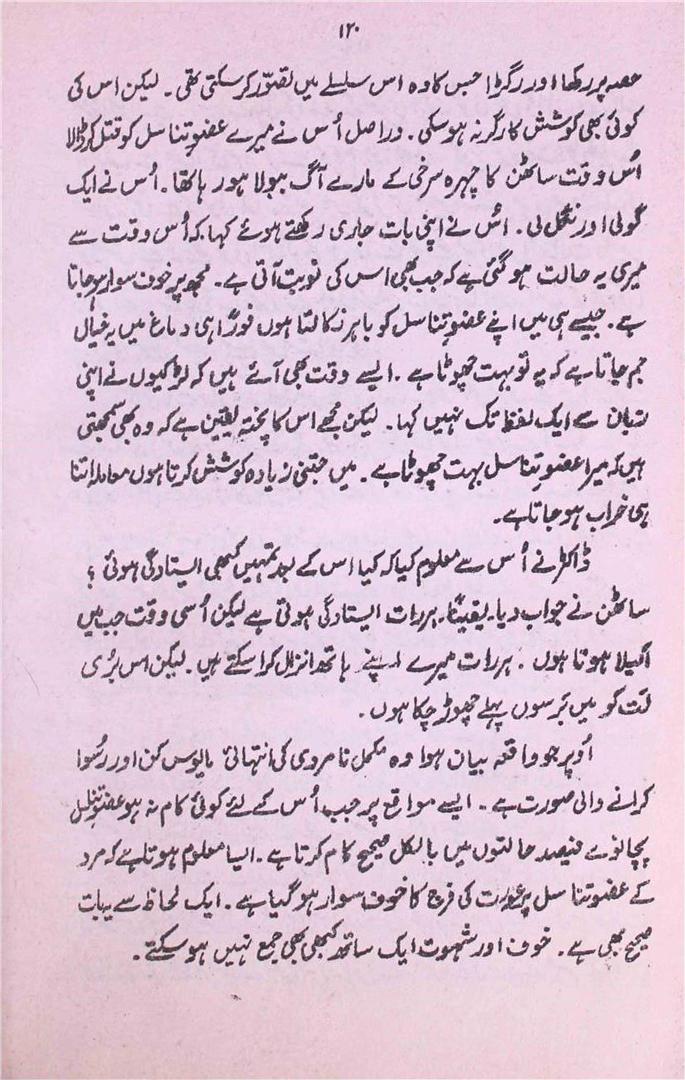 ۱۲۰
حصہ پر رکھا اور رگڑا جس کا وہ اس سلسلے میں تصوّر کر سکتی تھی۔ لیکن اس کی
کوئی بھی کوشش کارگر نہ ہو سکی۔ دراصل اُس نے میرے عضو تناسل کو قتل کر ڈالا
اُس وقت سائمن کا چہرہ سرخی کے مارے آگ ببولا ہو رہا تھا۔ اُس نے ایک
گولی اور نگل لی۔ اس نے اپنی بات جاری رکھتے ہوئے کہا۔ کہ اُس وقت سے
میری یہ حالت ہو گئی ہے کہ جب بھی اس کی نوبت آتی ہے۔ مجھ پر خوف سوار ہو جاتا
ہے۔ جیسے ہی میں اپنے عضو تناسل کو باہر نکالتا ہوں فوراً ہی دماغ میں یہ خیال
جم جاتا ہے کہ یہ تو بہت چھوٹا ہے۔ ایسے وقت بھی آئے ہیں کہ لڑکیوں نے اپنی
زبان سے ایک لفظ تک نہیں کہا۔ لیکن مجھے اس کا پختہ یقین ہے کہ وہ بھی سمجھتی
ہیں کہ میرا عضو تناسل بہت چھوٹا ہے۔ میں جتنی زیادہ کوشش کرتا ہوں معاملہ اتنا
ہی خراب ہو جاتا ہے۔
ڈاکٹر نے اُس سے معلوم کیا کہ کیا اس کے بعد تمہیں کبھی ایستادگی ہوئی؟
سائمن نے جواب دیا۔ یقیناً۔ ہر رات ایستادگی ہوتی ہے لیکن اُسی وقت جب میں
اکیلا ہوتا ہوں۔ ہر رات میرے اپنے ہاتھ انزال کرا سکتے ہیں۔ لیکن اس بُری
لت کو میں برسوں پہلے چھوڑ چکا ہوں۔
اُوپر جو واقعہ بیان ہوا وہ مکمل نامردی کی انتہائی مایوس کن اور رسوا
کرانے والی صورت ہے۔ ایسے مواقع پر جب اُس کے لئے کوئی کام نہ ہو عضو تناسل
پچانوے فیصد حالتوں میں بالکل صحیح کام کرتا ہے۔ ایسا معلوم ہوتا ہے کہ مرد
کے عضو تناسل پر عورت کی فرج کا خوف سوار ہو گیا ہے۔ ایک لحاظ سے یہ بات
صحیح بھی ہے۔ خوف اور شہوت ایک ساتھ کبھی بھی جمع نہیں ہو سکتے۔